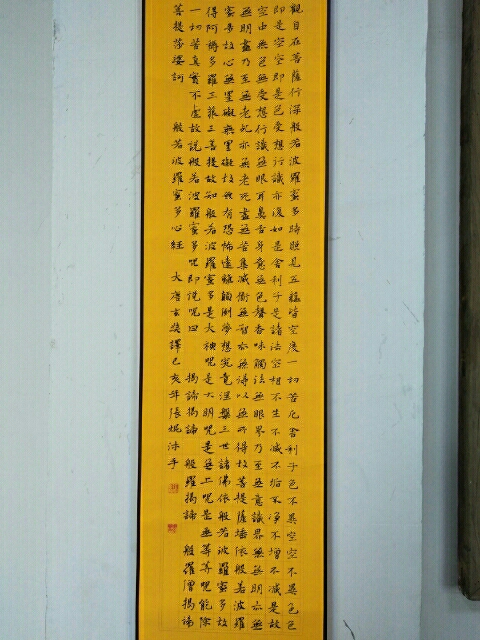 觀自在菩薩行深般若波羅蜜多時照見五蘊皆空度一切苦厄舍利子色不異空空不異色色
即是空空即是色受想行識亦復如是舍利子是諸法空相不生不滅不垢不淨不增不減是故
空中無色無受想行識無眼耳鼻舌身意無色聲香味觸法無眼界乃至無意識界無無明亦無
無明盡乃至無老死亦無老死盡無苦集滅道無智亦無得以無所得故菩提薩埵依般若波羅
蜜多故心無罣礙無罣礙故無有恐怖遠離顛倒夢想究竟涅槃三世諸佛依般若波羅蜜多故
得阿耨多羅三藐三菩提故知般若波羅蜜多是大神咒是大明咒是無上咒是無等等咒能除
一切苦真實不虛故說般若波羅蜜多咒即說咒曰 揭諦揭諦 般羅揭諦 般羅僧揭諦
菩提莎婆訶 般若波羅蜜多心經 大唐玄奘譯己亥年張焜沐手